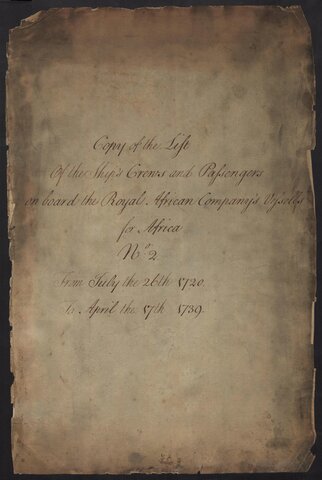 Copy of the List
Of the Ship's Crews and Passengers
on board the Royal African Company's Vessells
for Africa
No. 2
From July the 26th 1720
To April the 17th 1739.